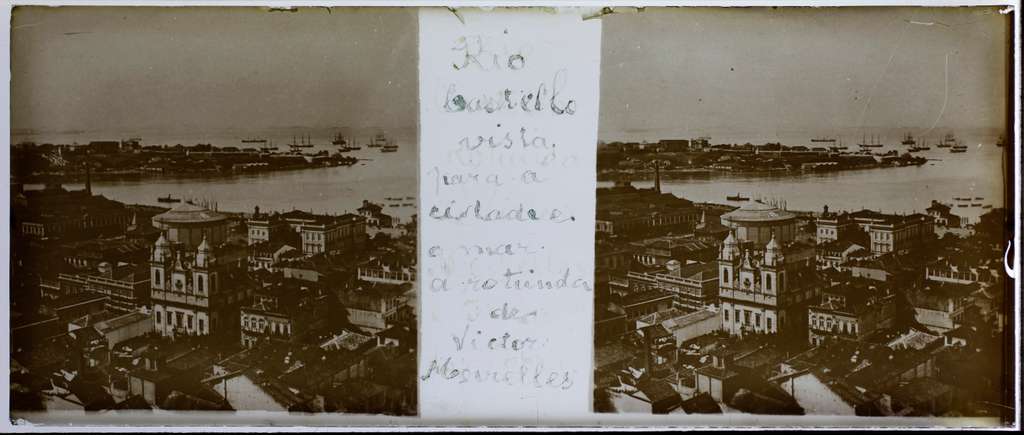 Rio
Castello
vista
para a
cidade
o mar
a rotunda
de
Victor
Meirelles